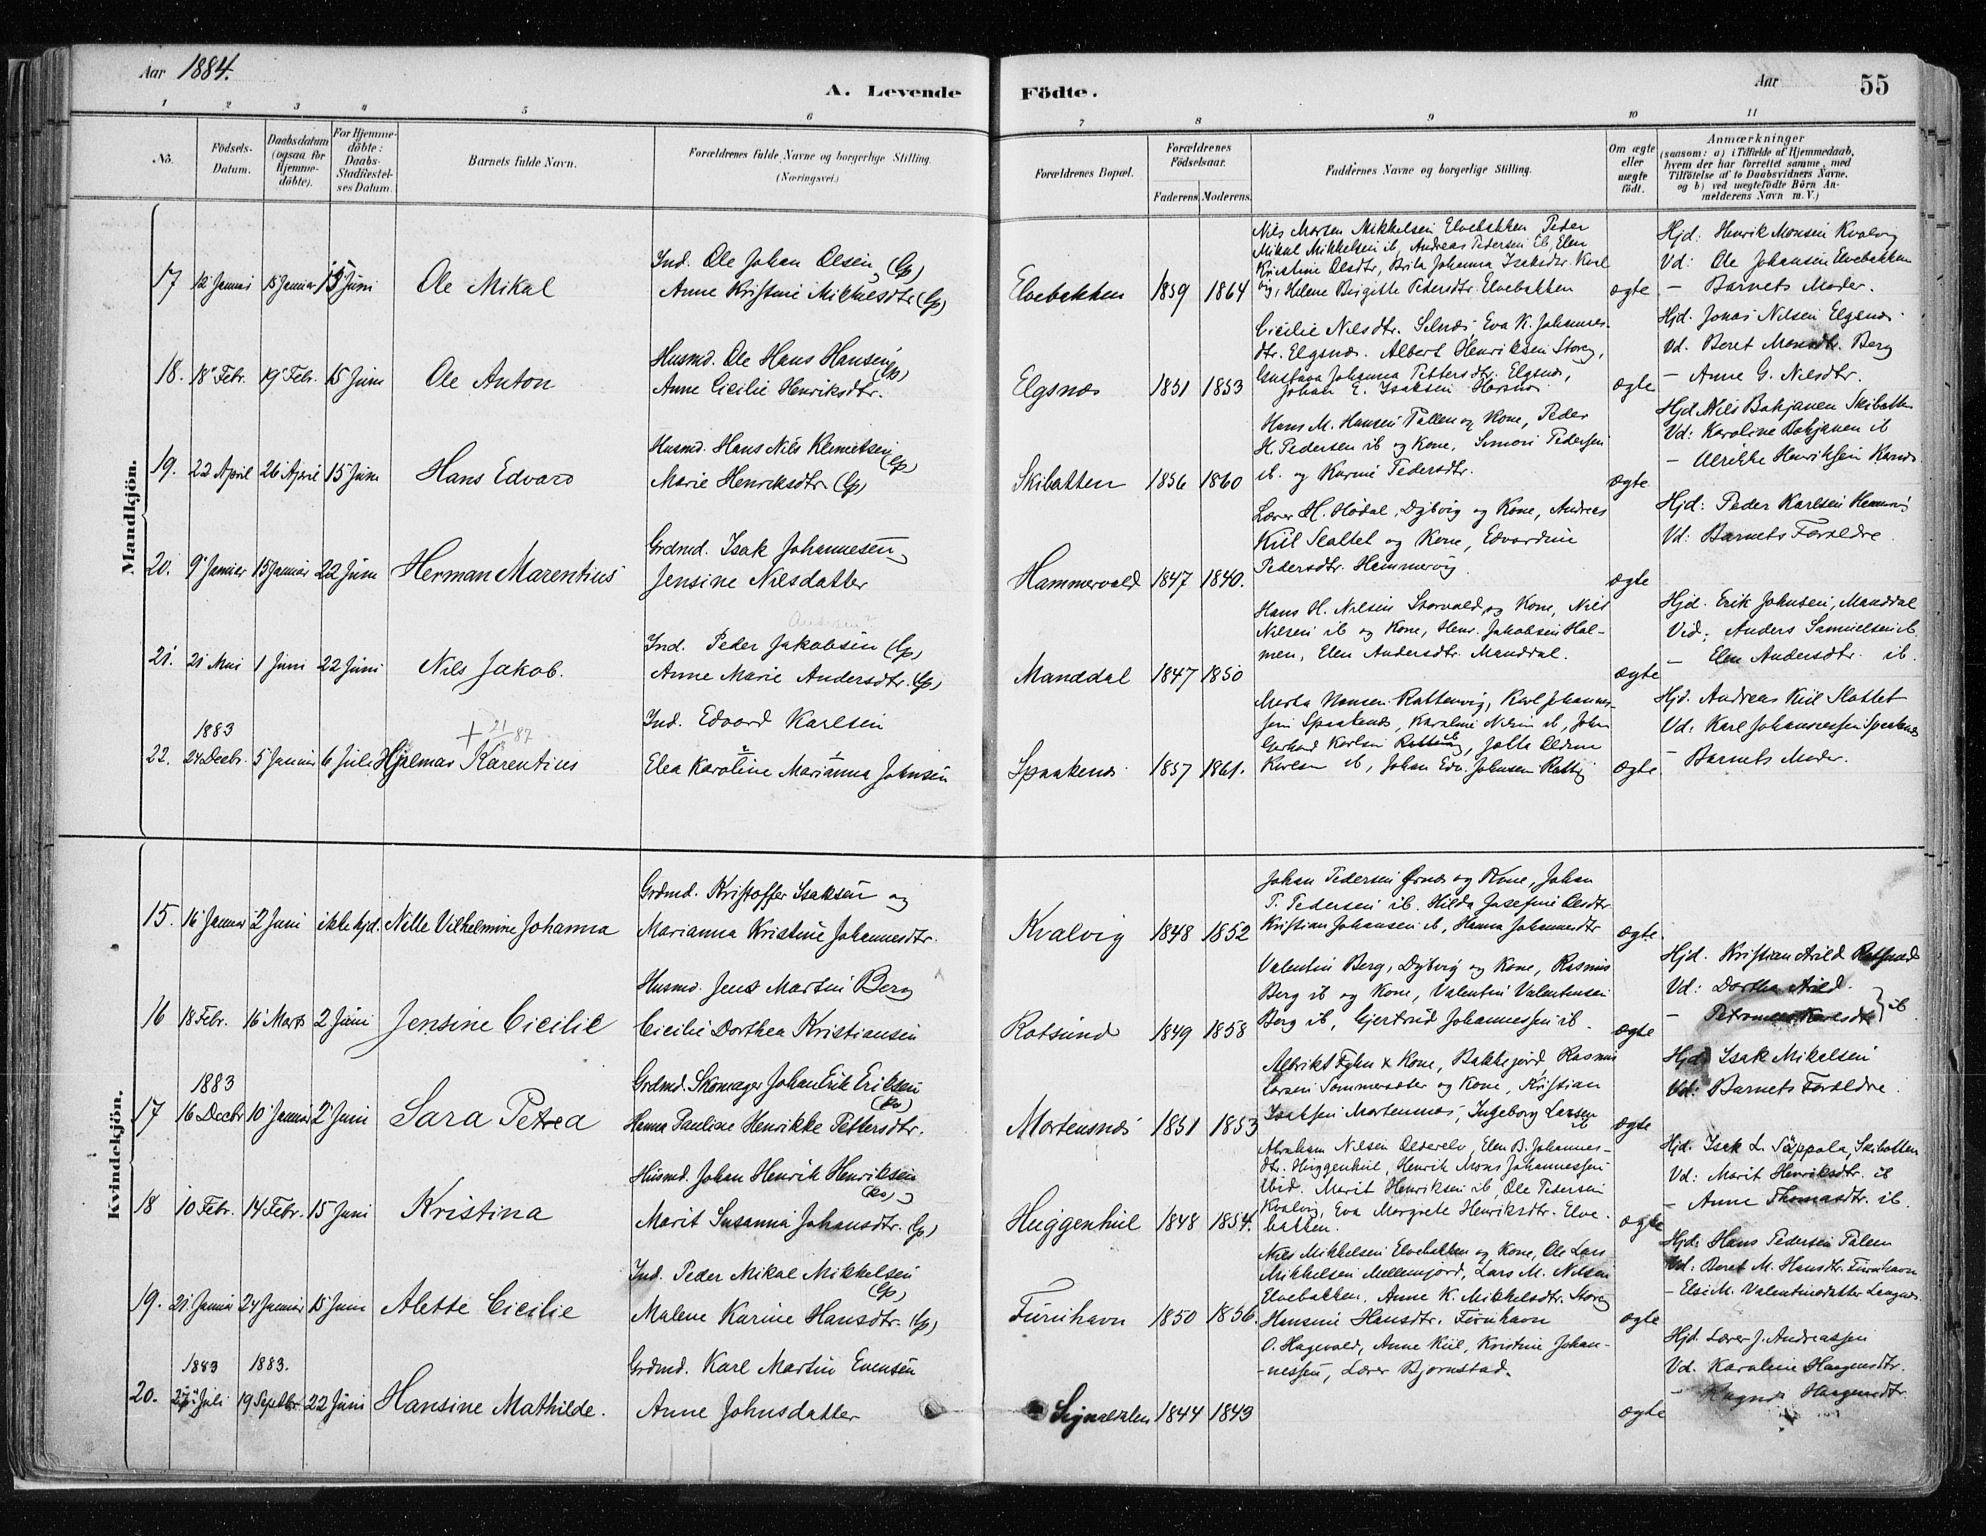 Aar 1884.
A. Levende Födte.
Aar 55
1 2 3 4 5 6 7 8 9 10 11
No.
Födsels-Datum.
Daabsdatum (ogsaa for Hjemme-döbte).
For Hjemme-döbte: Daabs-Stadfæstel-ses Datum.
Barnets fulde Navn.
Forældrenes fulde Navne og borgerlige Stilling. (Næringsvei.)
Forældrenes Bopæl.
Forældrenes Födselsaar.
Faderens. Moderens.
Faddernes Navne og borgerlige Stilling.
Om ægte eller uægte födt.
Anmærkninger
(saasom: a) i Tilfælde af Hjemmedaab,
hvem der har forrettet samme, med
Tilföielse af to Daabsvidners Navne.
og b) ved uægtefödte Börn An-
melderens Navn m. V.)
Mandkjön.
17 12 Januar 15 Januar 15 Juni Ole Mikal
Ind. Ole Johan Olsen (Lp)
Anne Kristine Mikkelsdtr (Lp)
Elvebakken 1859 1864
Nils Morten Mikkelsen Elvebakken Peder
Mikal Mikkelsen ib, Andreas Pedersen Eb, Elen
Kristine Olsdtr, Brita Johanna Isaksdtr. Kval
vig, Helene Birgitte Pedersdtr. Elvebakken
ægte
Hjd: Henrik Monsen Kvalvig
Vd: Ole Johansen Elvebakken
— Barnets Moder.
18. 18 Febr. 19 Febr. 15 Juni Ole Anton
Husmd. Ole Hans Hansen (Lp)
Anne Cicilie Henriksdtr.
Elgsnæs 1851 1853
Cicilie Nilsdtr. Selnæs Eva K. Johannes-
dtr. Elgsnæs. Albert Henriksen Storeng,
Gustava Johanna Pettersdtr. Elgsnæs,
Johan E. Isaksen
ægte
Hjd. Jonas Nilsen Elgsnæs.
Vd. Beret Monsdtr. Berg
— Anne G. Nilsdtr.
19. 22 April 26 April 15 Juni Hans Edvard
Husmd. Hans Nils Klemetsen (Lp)
Marie Henriksdtr (Lp)
Skibotten 1856 1860
Hans M. Hansen Pallen og Kone, Peder
H. Pedersen ib og Kone, Simon Pedersen
ib. og Karine Pedersdtr.
ægte
Hjd. Nils Bahjanen Skibotten
Vd: Karoline Bahjanen ib
— Ulrikke Henriksen
20. 9 Januar 15 Januar 22 Juni Herman Marentius
Grdmd. Isak Johannesen
Jensine Nilsdatter
Hammervold 1847 1840.
Lærer H. Hodal, Dybvig og Kone, Andreas
Kiil Slottet og Kone, Edvardine
Pedersdtr. Hammervig
ægte
Hjd: Peder Karlsen
Vd: Barnets Forældre.
21. 21 Mai 1 Juni 22 Juni Nils Jakob.
Andersen?
Ind. Peder Jakobsen (Lp)
Anne Marie Andersdtr. (Lp)
Manddal 1847 1850
Hans H. Nilsen Storvold og Kone, Nils
Nilsen ib og Kone, Henr. Jakobsen Hol-
men, Elen Andersdtr. Manddal.
ægte
Hjd. Erik Johnsen, Manddal
Vid. Anders Samuelsen ib.
— Elen Andersdtr. ib.
22. 1883 24 Decbr. 5 Januar 6 Juli Hjalmar Karentius
Ind. Edvard Karlsen
Elea Karoline Marianna Johnsen
Spaakenæs 1857 1861.
Marta Hansen Rottenvig, Karl Johannes-
sen Spaakenæs, Karoline Nilsen ib, John
Gerhard Karlsen Rottevig,
Karlsen ib, Johan Edv. Johnsen
ægte
Hjd. Andreas Kiil Slottet
Vd: Karl Johannessen Spaakenæs
— Barnets Moder.
Kvindekjön.
15. 16 Januar 2 Juni ikke hjd. Nille Vilhelmine Johanna
Grdmd. Kristoffer Isaksen og
Marianna Kristine Johannesdtr.
Kvalvig 1848 1852
Johan Pedersen Ørnæs og Kone, Johan
P. Pedersen ib. Hilda Josefine Olsdtr.
Kristian Johansen ib, Hanna Johannesdtr
ægte.
16 18 Febr. 16 Marts 2 Juni Jensine Cicilie
Husmd. Jens Martin Berg
Cicilie Dorthea Kristiansen
Rotsund 1849 1858
Valentin Berg, Dybvig og Kone, Rasmus
Berg ib og Kone, Valentin Valentinsen
Berg ib, Gjertrud Johannessen ib.
ægte
Hjd. Kristian Arild Rotsund
Vd: Dorthea Arild.
— Karlsdtr ib
17 1883 16 Decbr 10 Januar 2 Juni Sara Petrea
Grdmd. Skomager Johan Erik Eriksen (Kv)
Hanna Pauline Henrikke Pettersdtr.
Mortensnæs 1851 1853
Albrikt Fyhn & Kone, Bakkejord, Rasmus
Larsen Sommersæter og Kone, Kristian
Isaksen Mortensnæs, Ingeborg Larsen ib
ægte
Hjd: Isak Mikelsen
Vd: Barnets Forældre.
18 10 Febr. 14 Febr. 15 Juni Kristina
Husmd. Johan Henrik Henriksen (Kv)
Marit Susanna Johansdtr. (Lp)
Huggenhul 1848 1854.
Abraham Nilsen Olderelv, Elen B. Johannes-
dtr. Huggenhul, Henrik Mons Johannessen
Ibid. Marit Henriksen ib, Ole Pedersen
Kvalvig, Eva Margrete Henriksdtr. Elve-
bakken.
ægte
Hjd: Isak L. Säppola, Skibotten
Vd: Marit Henriksdtr. ib
— Anne Thomasdtr. ib.
19. 21 Januar 24 Januar 15 Juni Alette Cicilie
Ind. Peder Mikal Mikkelsen (Lp)
Malene Karine Hansdtr. (Lp)
Furuhavn 1850 1856.
Nils Mikkelsen Elvebakken og Kone, Ole Lars
Mikkelsen Mellemjord, Lars M. Nilsen
Elvebakken, Anne K. Mikkelsdtr. Storeng
Hansine Hansdtr. Furuhavn
ægte
Hjd. Hans Pedersen Palen
Vd. Beret M. Hansdtr. Furuhavn
— Elsi M. Valentinsdatter
20. 1883 27 Juli 1883. 19 Septbr. 22 Juni Hansine Mathilde.
Grdmd. Karl Martin Evensen
Anne Johnsdatter
Signaldalen 1844 1843
O. Hagevold, Anne Kiil, Kristine Johan-
nessen, Lærer Bjørnstad.
ægte
Hjd. Lærer J. Andreassen
Vd. Karoline Haagensdtr.
— Haagensdtr.